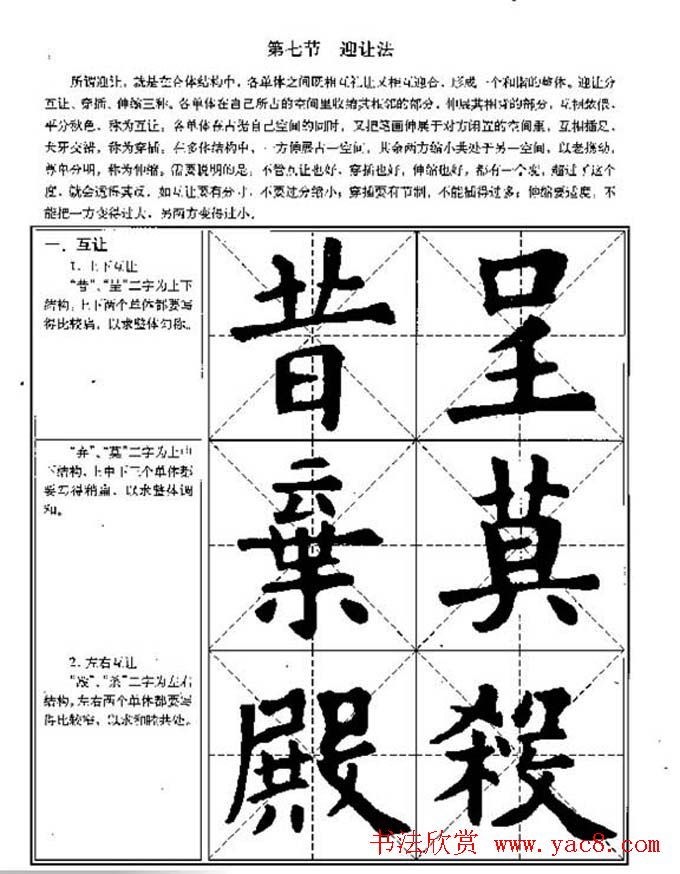 第七节 迎让法
所谓迎让，就是在合体结构中，各单体之间既相互礼让又相互迎合，形成一个和谐的整体。迎让分
互让、穿插、伸缩三种。各单体在自己所占的空间里收缩其相邻的部分，伸展其相背的部分，互相
平分秋色，称为互让；各单体在占据自己空间的同时，又把笔画伸展于对方闲置的空间里，互相插足、
犬牙交错，称为穿插；在多体结构中，一方伸展占一空间，其余两方缩小共处于另一空间，以老携幼，
尊卑分明，称为伸缩。需要说明的是，不管互让也好，穿插也好，伸缩也好，都有一个度，超过了这个
度，就会适得其反。如互让要有分寸，不要过分缩小；穿插要有节制，不能插得过多；伸缩要适度，不
能把一方变得过大，另两方变得过小。
一、互让
1．上下互让
“昔”、“呈”二字为上下
结构，上下两个单体都要写
得比较扁，以求整体匀称。
昔 呈
“弃”、“莫”二字为上中
下结构，上中下三个单体都
要写得稍扁，以求整体调
和。
棄 莫
2．左右互让
“殿”、“杀”二字为左右
结构，左右两个单体都要写
得比较窄，以求和睦共处。
殿 殺
书法欣赏 www.yac8.com